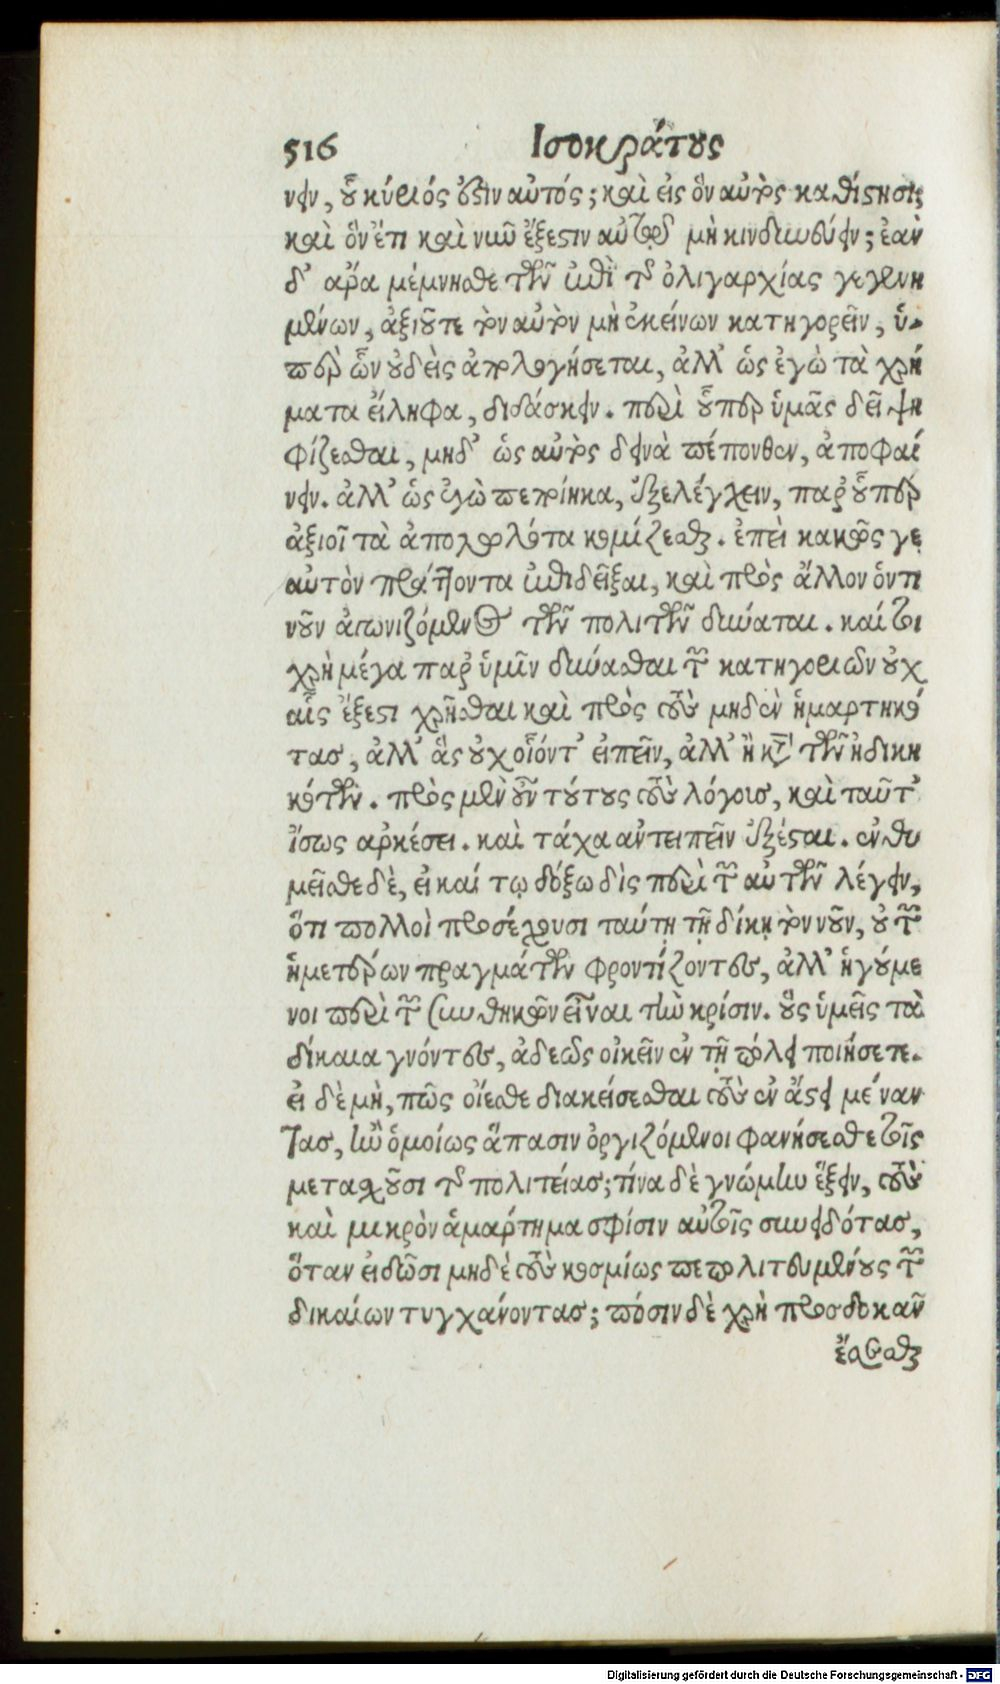 516 Ισοκράτους
νειν, οὗ κύριός ἐστιν αὐτός; καὶ εἰς ὃν αὑτὸς καθίστησι;
καὶ ὃν ἔτι καὶ νῦν ἔξεστιν αὐτῷ μὴ κινδυνεύειν; ἐὰν
δ' ἄρα μέμνησθε τῶν ἐπὶ τῆς ὀλιγαρχίας γεγενη
μένων, ἀξιοῦτε τὸν αὐτὸν μὴ ἐκείνων κατηγορεῖν, ὑ-
πὲρ ὧν οὐδεὶς ἀπολογήσεται, ἀλλ' ὡς ἐγὼ τὰ χρή
ματα εἴληφα, διδάσκειν. περὶ οὗπερ ὑμᾶς δεῖ ψη
φίζεσθαι, μηδ' ὡς αὐτὸς δεινὰ πέπονθεν, ἀποφαί
νειν. ἀλλ' ὡς ἐγὼ πεποίηκα, ἐξελέγχειν, παρ' οὗπερ
ἀξιοῖ τὰ ἀπολωλότα κομίζεσθαι. ἐπεὶ κακῶς γε
αὐτὸν πράττοντα ἐπιδεῖξαι, καὶ πρὸς ἄλλον ὁντι
νοῦν ἀγωνιζόμενος τῶν πολιτῶν δύναται. καίτοι
χρὴ μέγα παρ' ὑμῖν δύνασθαι τῶν κατηγοριῶν οὐχ
αἷς ἔξεστι χρῆσθαι καὶ πρὸς τοὺς μηδὲν ἡμαρτηκό
τας, ἀλλ' ἃς οὐχ οἷόντ' εἰπεῖν, ἀλλ' ἢ κατὰ τῶν ἠδικη
κότων. πρὸς μὲν οὖν τούτους τοὺς λόγους, καὶ ταῦτ'
ἴσως αρκέσει. καὶ τάχα αντειπεῖν ἐξέσται. ἐνθυ
μεῖσθε δὲ, εἰ καί τῳ δόξω δὶς περὶ τῶν αὐτῶν λέγειν,
ὅτι πολλοὶ προσέχουσι ταύτῃ τῇ δίκῃ τὸν νοῦν, οὐ τῶν
ἡμετέρων πραγμάτων φροντίζοντες, ἀλλ' ἡγούμε
νοι περὶ τῶν συνθηκῶν εἶναι τὴν κρίσιν. οὓς ὑμεῖς τὰ
δίκαια γνόντες, ἀδεῶς οἰκεῖν ἐν τῇ πόλει ποιήσετε.
εἰ δὲ μὴ, πῶς οἴεσθε διακείσεσθαι τοὺς ἐν ἄστει μείναν
τας, ἢν ὁμοίως ἅπασιν ὀργιζόμενοι φανήσεσθε τοῖς
μετασχοῦσι τῆς πολιτείας; τίνα δὲ γνώμην ἕξειν, τοὺς
καὶ μικρὸν ἁμάρτημα σφίσιν αὐτοῖς συνειδότας,
ὅταν εἰδῶσι μηδὲ τοὺς κοσμίως πεπολιτευμένους τῶν
δικαίων τυγχάνοντας; πόσιν δὲ χρὴ προσδοκᾶν
ἔσεσθαι
Digitalisierung gefördert durch die Deutsche Forschungsgemeinschaft - DFG